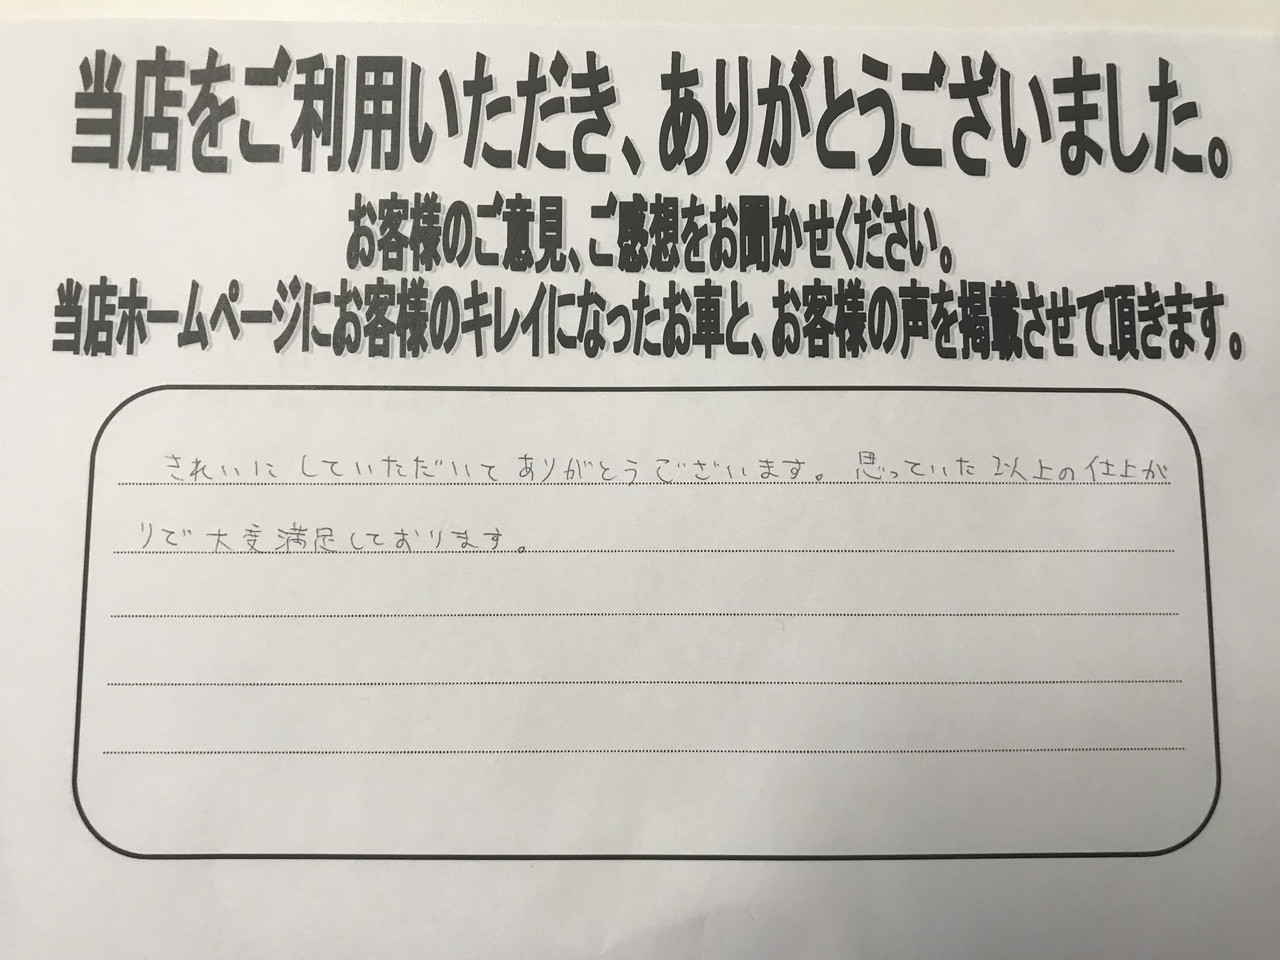 当店をご利用いただき、ありがとうございました。
お客様のご意見、ご感想をお聞かせください。
当店ホームページにお客様のキレイになったお車と、お客様の声を掲載させて頂きます。
きれいにしていただいてありがとうございます。思っていた以上の仕上が
りで大変満足しております。